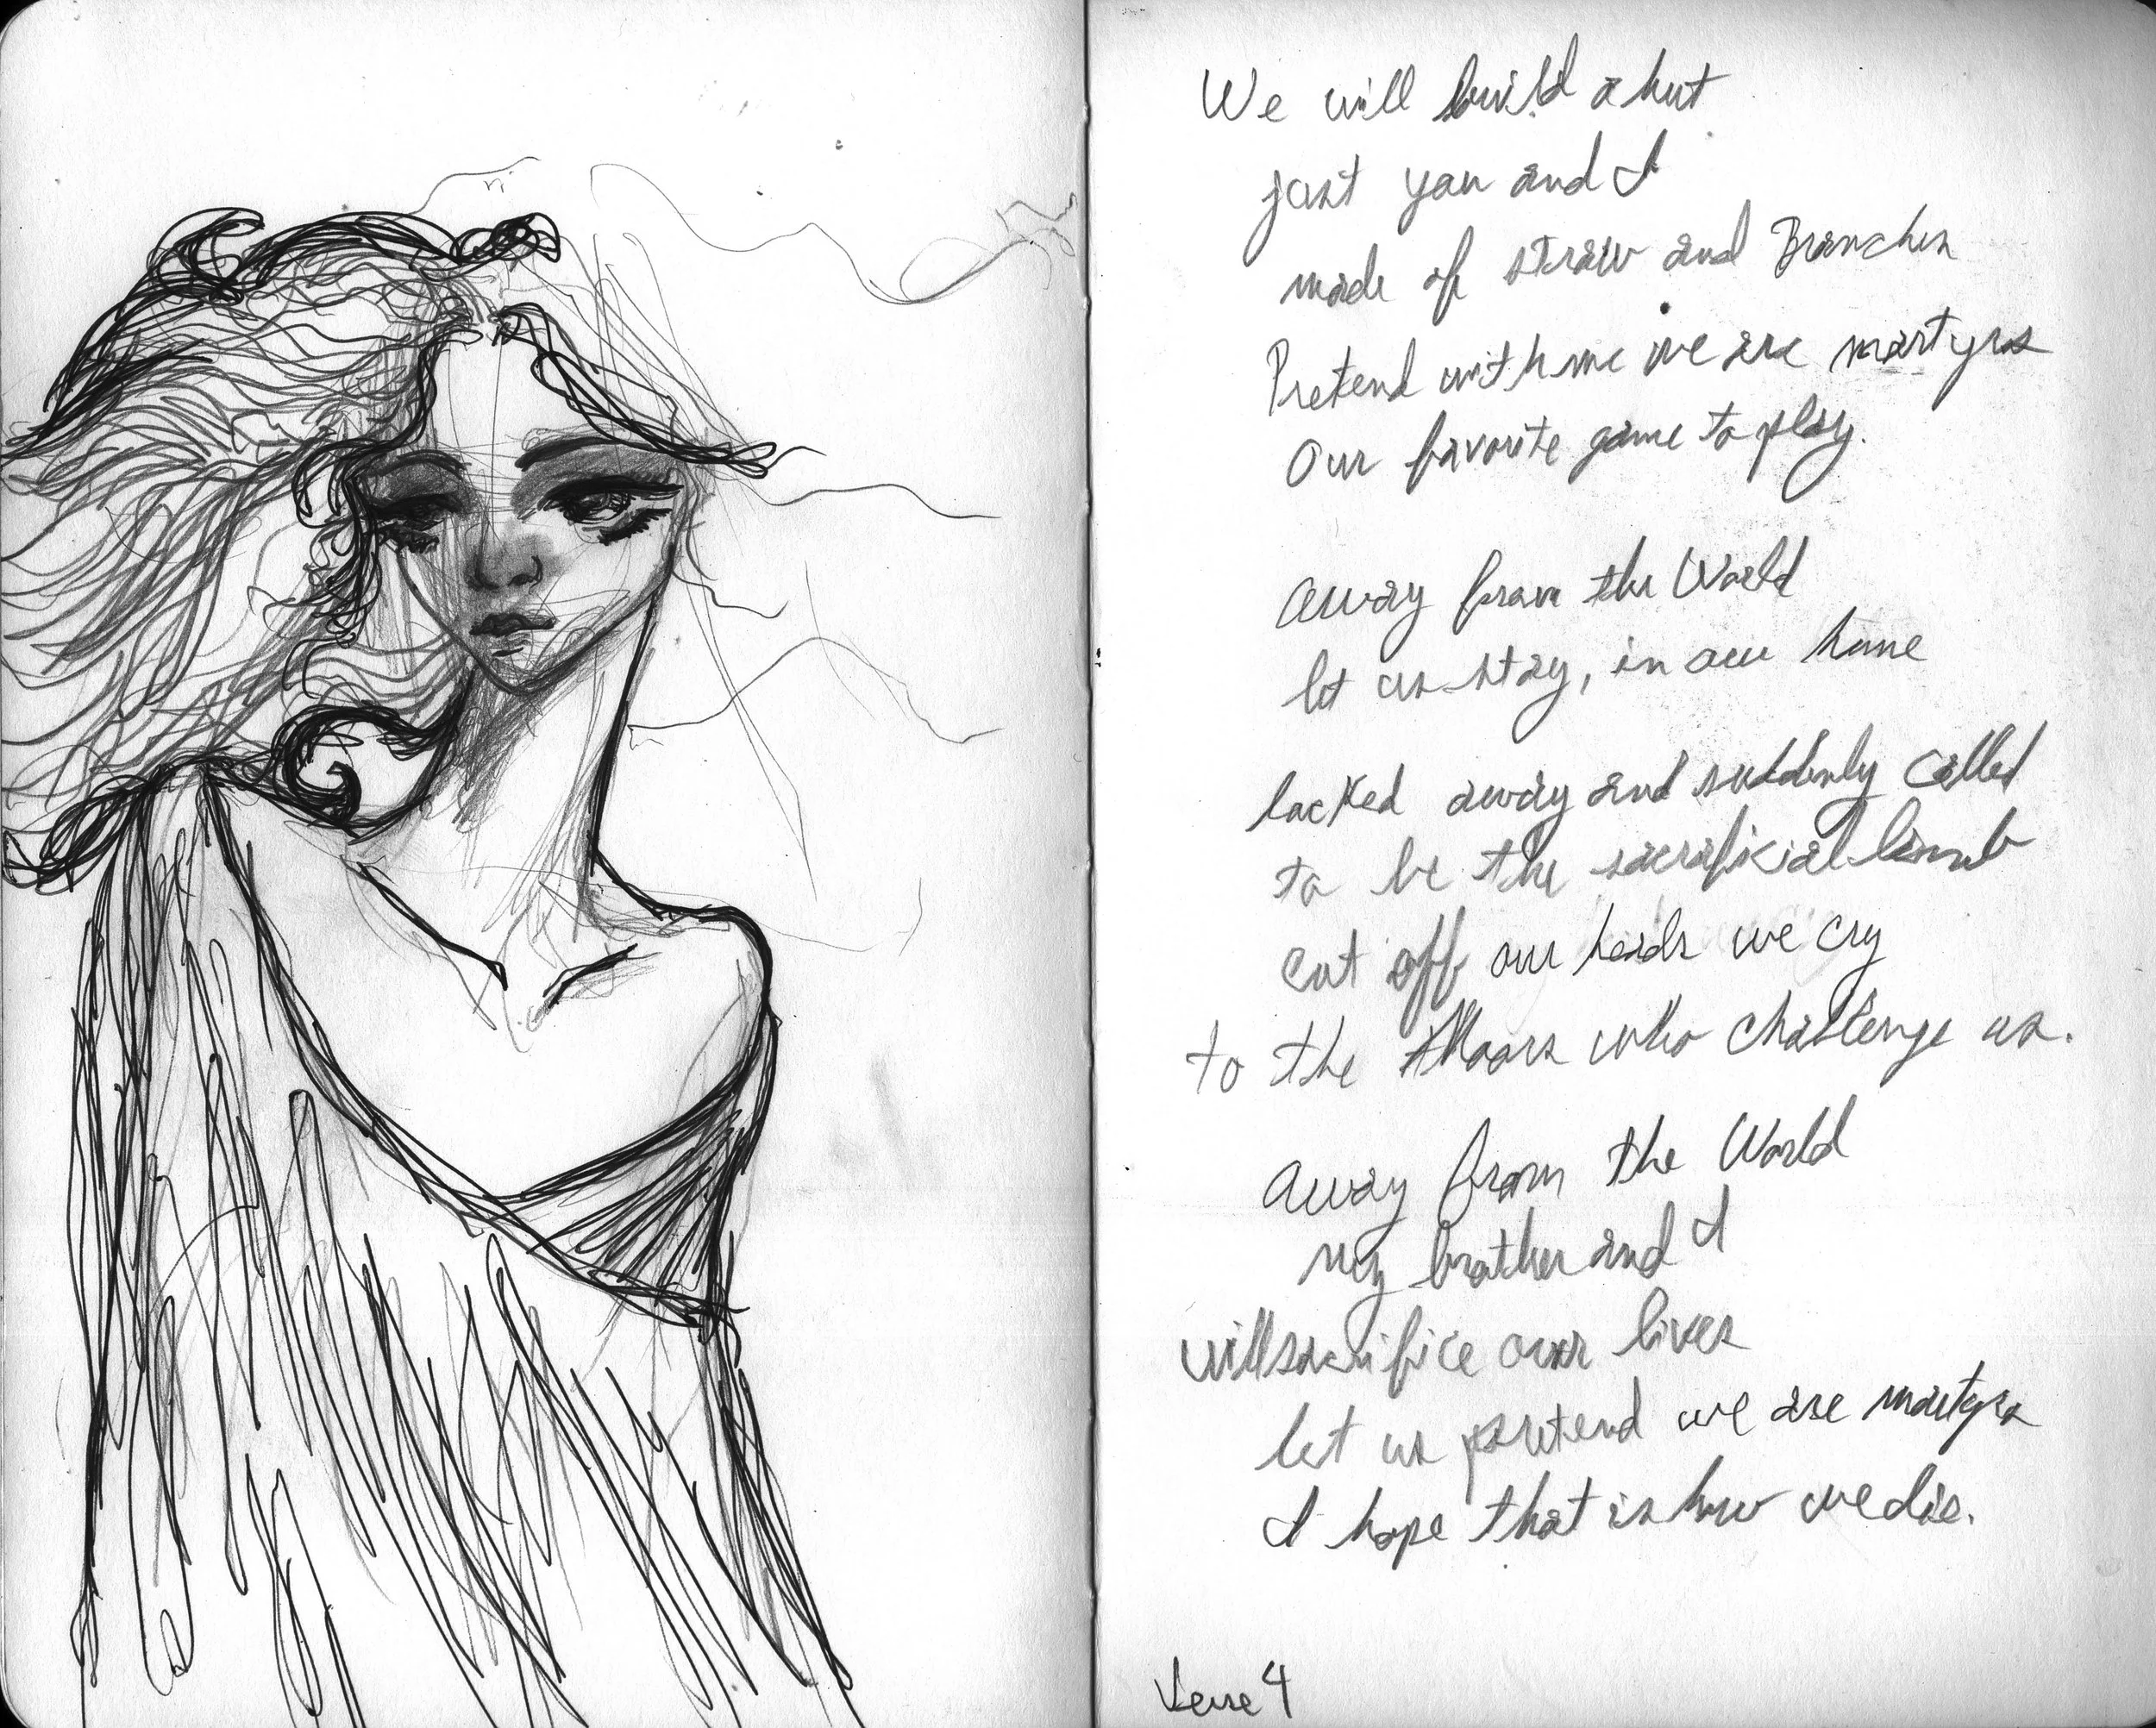 We will build a hut
just you and I
made of straw and Branches
Pretend with me we are martyrs
Our favorite game to play.
Away from the World
let us stay, in our home
locked away and suddenly called
to be the sacrificial lamb
cut off our heads we cry
to the Moors who challenge us.
Away from the World
my brother and I
will sacrifice our lives
let us pretend we are martyrs
I hope that is how we die.
Verse 4